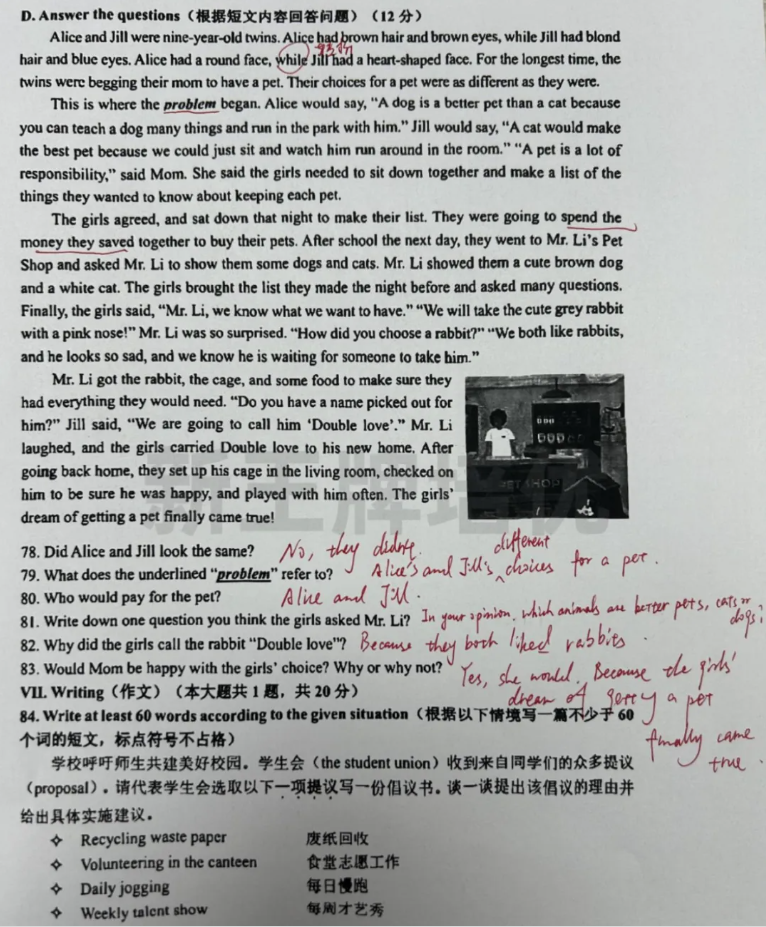 D. Answer the questions（根据短文内容回答问题）（12 分）
Alice and Jill were nine-year-old twins. Alice had brown hair and brown eyes, while Jill had blond
hair and blue eyes. Alice had a round face, while Jill had a heart-shaped face. For the longest time, the
twins were begging their mom to have a pet. Their choices for a pet were as different as they were.
This is where the problem began. Alice would say, “A dog is a better pet than a cat because
you can teach a dog many things and run in the park with him.” Jill would say, “A cat would make
the best pet because we could just sit and watch him run around in the room.” “A pet is a lot of
responsibility,” said Mom. She said the girls needed to sit down together and make a list of the
things they wanted to know about keeping each pet.
The girls agreed, and sat down that night to make their list. They were going to spend the
money they saved together to buy their pets. After school the next day, they went to Mr. Li’s Pet
Shop and asked Mr. Li to show them some dogs and cats. Mr. Li showed them a cute brown dog
and a white cat. The girls brought the list they made the night before and asked many questions.
Finally, the girls said, “Mr. Li, we know what we want to have.” “We will take the cute grey rabbit
with a pink nose!” Mr. Li was so surprised. “How did you choose a rabbit?” “We both like rabbits,
and he looks so sad, and we know he is waiting for someone to take him.”
Mr. Li got the rabbit, the cage, and some food to make sure they
had everything they would need. “Do you have a name picked out for
him?” Jill said, “We are going to call him ‘Double love’.” Mr. Li
laughed, and the girls carried Double love to his new home. After
going back home, they set up his cage in the living room, checked on
him to be sure he was happy, and played with him often. The girls’
dream of getting a pet finally came true!
PET SHOP
78. Did Alice and Jill look the same? No, they didn't.
79. What does the underlined “problem” refer to? Alice's and Jill's different choices for a pet.
80. Who would pay for the pet? Alice and Jill.
81. Write down one question you think the girls asked Mr. Li? In your opinion, which animals are better pets, cats or dogs?
82. Why did the girls call the rabbit “Double love”? Because they both liked rabbits.
83. Would Mom be happy with the girls’ choice? Why or why not? Yes, she would. Because the girls'
dream of a pet
finally came
true.
VII. Writing（作文）（本大题共 1 题，共 20 分）
84. Write at least 60 words according to the given situation（根据以下情境写一篇不少于 60
个词的短文，标点符号不占格）
学校呼吁师生共建美好校园。学生会（the student union）收到来自同学们的众多提议
（proposal）。请代表学生会选取以下一项提议写一份倡议书。谈一谈提出该倡议的理由并
给出具体实施建议。
✧ Recycling waste paper 废纸回收
✧ Volunteering in the canteen 食堂志愿工作
✧ Daily jogging 每日慢跑
✧ Weekly talent show 每周才艺秀